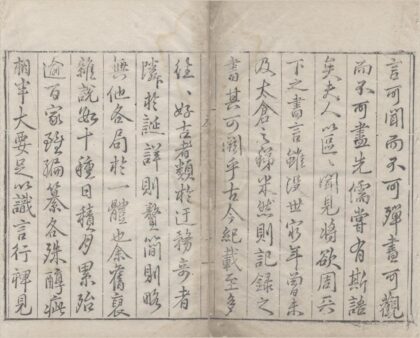 言可聞而不可殫書可觀
而不可盡先儒嘗有斯語
矣夫人以區〻聞見將欲周天
下之書言雖沒世窮年曾未
及太倉之稊米然則記録之
書其可闕乎古今紀載至多
徃〻好古者類於迂務奇者
隣於誕詳則贅簡則略
無他各局於一體也余舊裒
雜說數十種日積月累殆
逾百家雖編纂各殊醇疵
相半大要足以識言行裨見